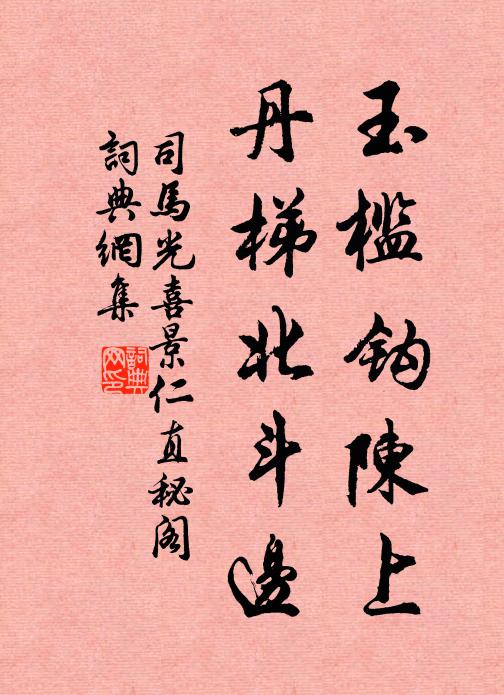 玉檻鈎陳上
丹梯北斗邊
司馬光喜景仁直秘閣
詞典網集
詞典網印